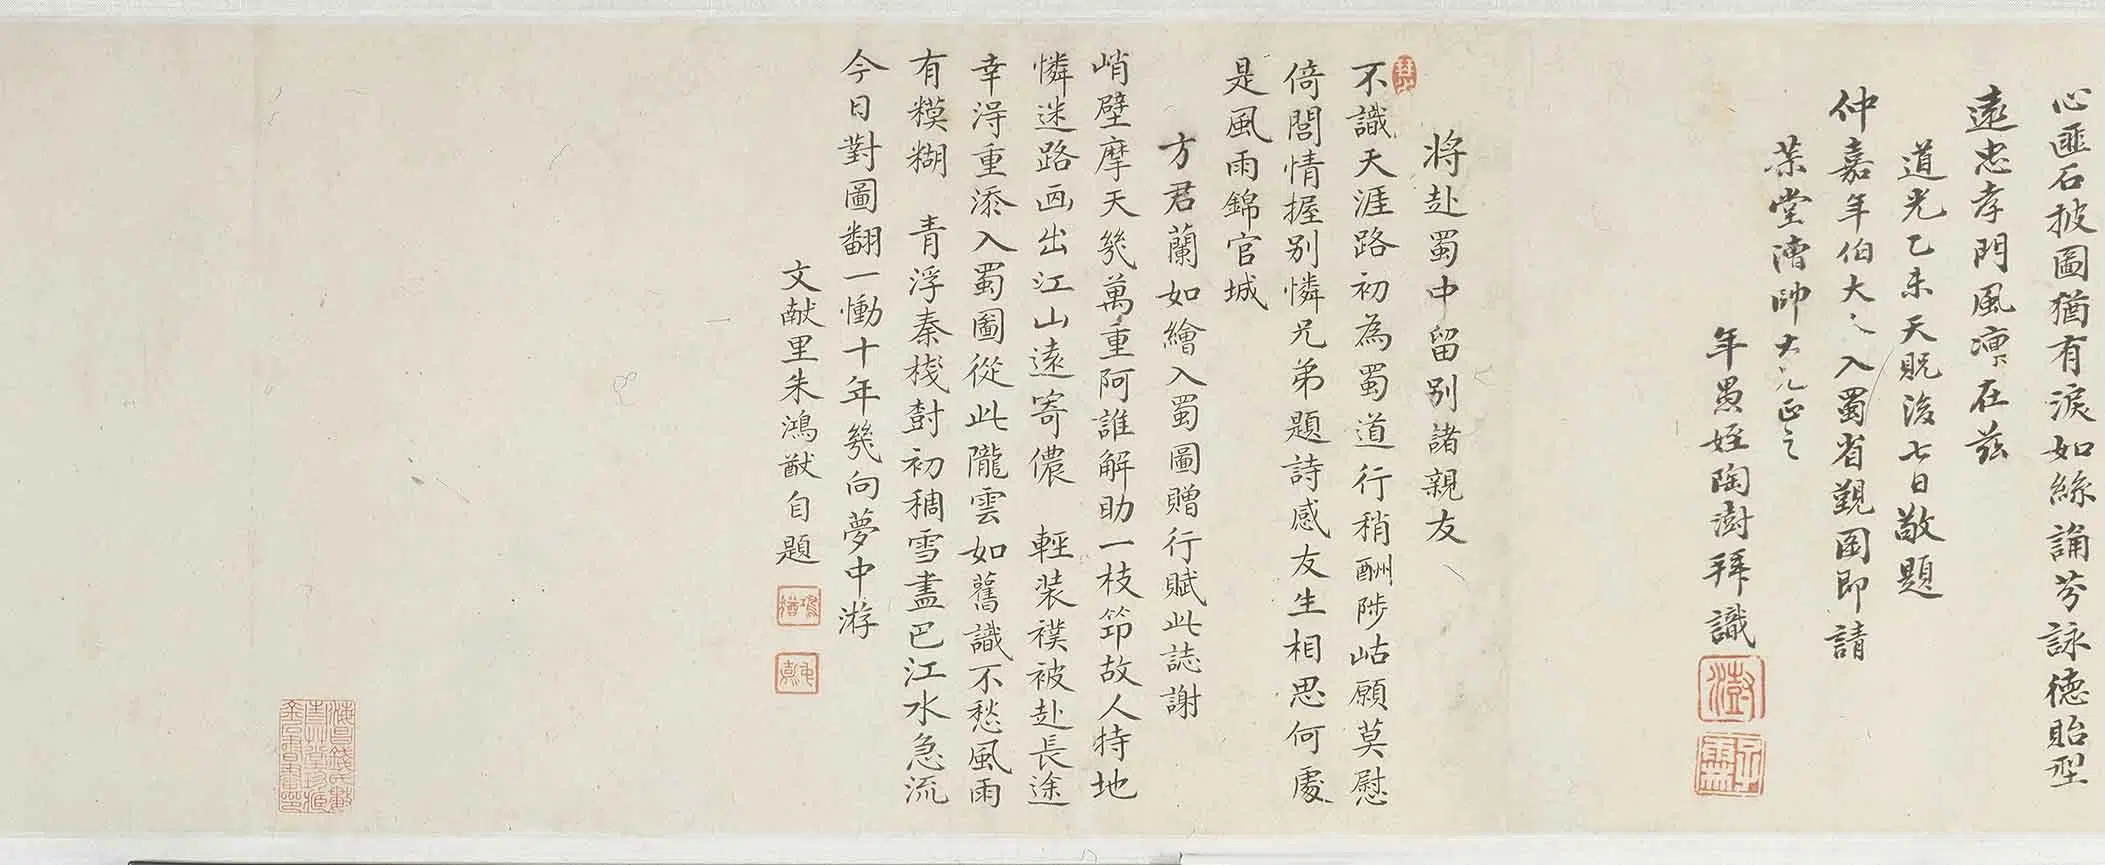 心匪石披圖猶有淚如絲誦芬詠德貽型
遠忠孝門風凜在茲
道光乙未天貺後七日敬題
仲嘉年伯大人入蜀省覲圖即請
棻堂漕帥大兄正之
年愚姪陶澍拜識
澍
子霖
將赴蜀中留別諸親友
不識天涯路初為蜀道行稍酬陟岵願莫慰
倚閭情握別憐兄弟題詩感友生相思何處
是風雨錦官城
方君蘭如繪入蜀圖贈行賦此誌謝
峭壁摩天幾萬重阿誰解助一枝笻故人特地
憐迷路画出江山遠寄儂 輕装襆被赴長途
幸得重添入蜀圖從此隴雲如舊識不愁風雨
有糢糊 青浮秦棧樹初稠雪盡巴江水急流
今日對圖翻一慟十年幾向夢中游
文献里朱鴻猷自題
鴻猷